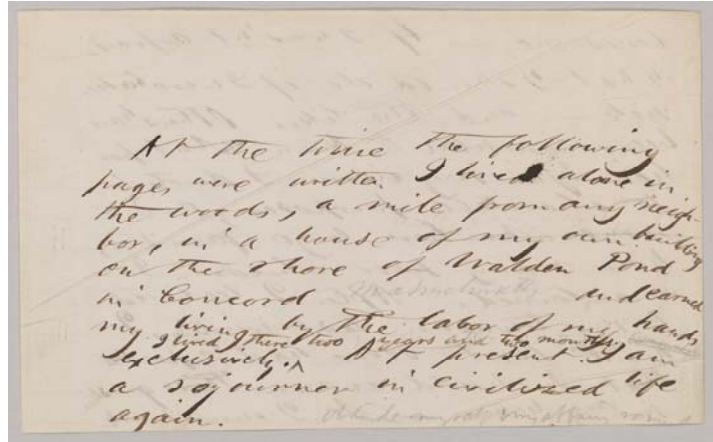 At the time the following
pages were written I lived alone in
the woods, a mile from any neigh-
bor, in a house of my own building
on the shore of Walden Pond
in Concord Massachusetts and earned
my living by the labor of my hands
I lived there two years and two months
exclusively. ^ At present I am
a sojourner in civilized life
again.